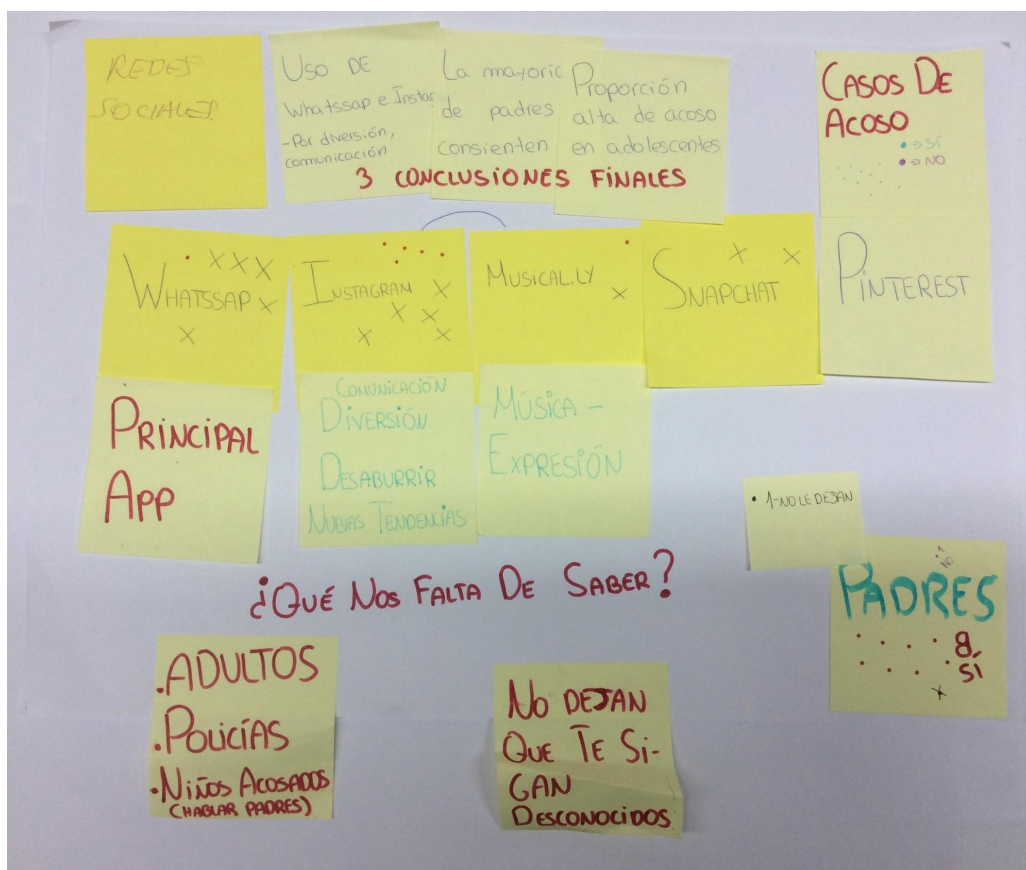 REDES
SOCIALES
USO DE
Whatssap e Instar
-Por diversión,
comunicación
La mayoric
de padres
consienten
Proporción
alta de acoso
en adolescentes
3 CONCLUSIONES FINALES
CASOS DE
ACOSO
• → SÍ
• → NO
WHATSSAP
XXX
X
X
INSTAGRAM
X
X X
X X
MUSICAL.LY
X
SNAPCHAT
X X
PINTEREST
PRINCIPAL
APP
COMUNICACIÓN
DIVERSIÓN
DESABURRIR
NUEVAS TENDENCIAS
MÚSICA -
EXPRESIÓN
• 1-NO LE DEJAN
NO 1
PADRES
8
SÍ
X
¿QUÉ NOS FALTA DE SABER?
.ADULTOS
.POLICÍAS
.NIÑOS ACOSADOS
(HABLAR PADRES)
NO DEJAN
QUE TE SI-
GAN
DESCONOCIDOS